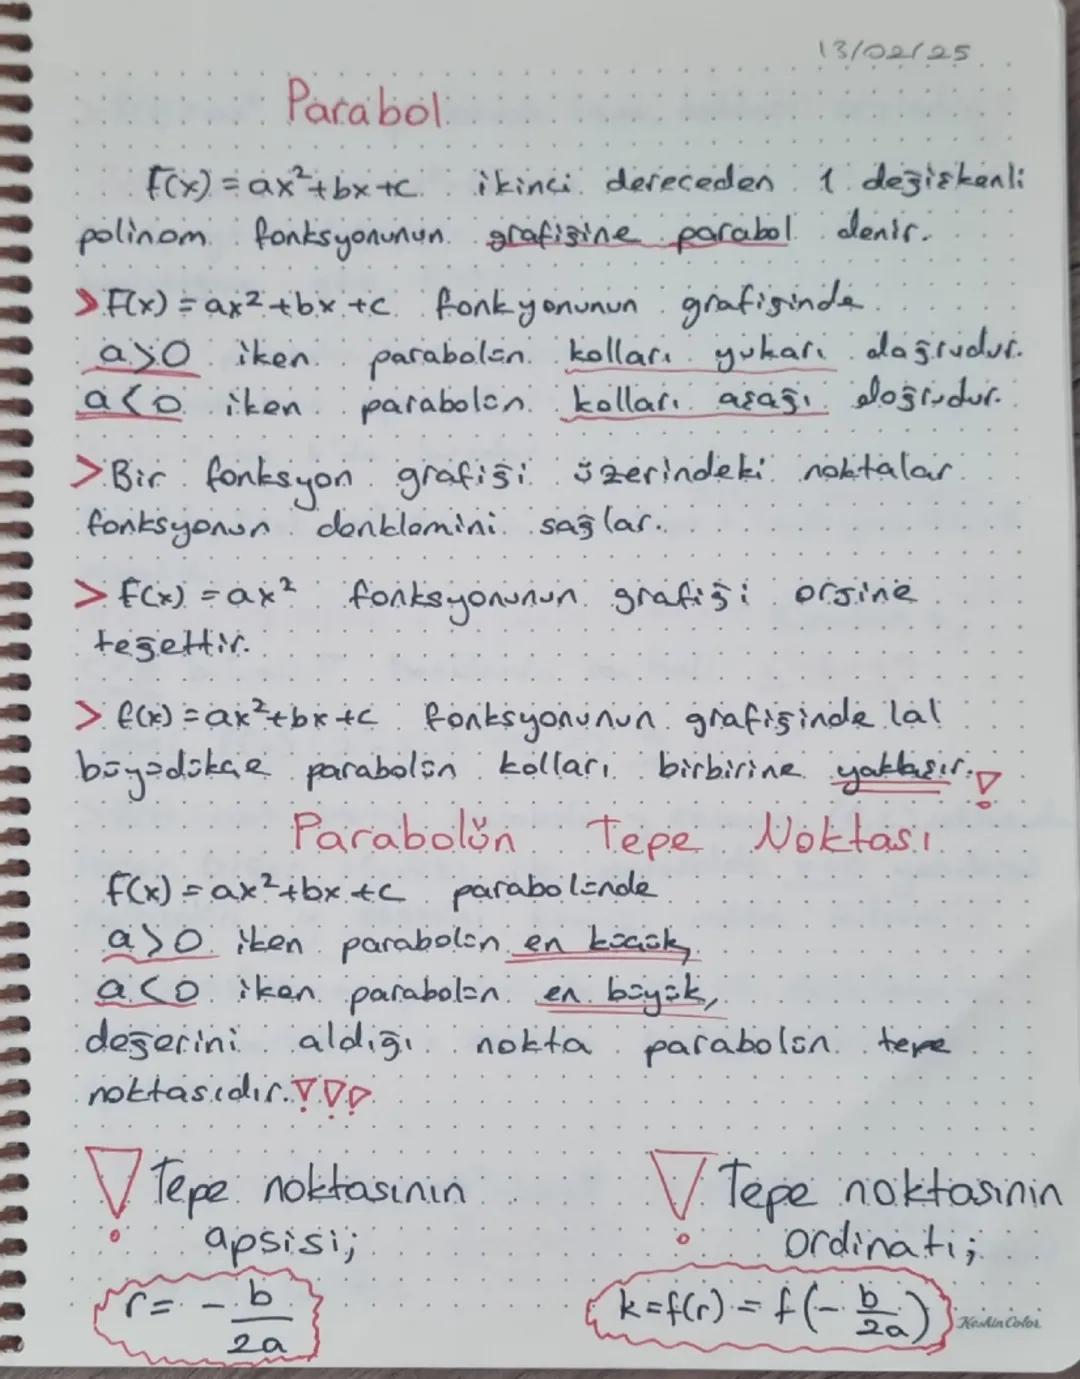 13/02/25
Parabol
f(x) = ax²+bx+c ikinci dereceden 1 değişkenli
polinom fonksyonunun grafiğine parabol denir.
> F(x) = ax²+bx+c fonkyonunun grafiğinde
a>0 iken parabolün kolları yukarı doğrudur.
a<0 iken parabolün kolları aşağı doğrudur.
> Bir fonksyon grafiği üzerindeki noktalar
fonksyonun denklemini sağlar.
> f(x) = ax² fonksyonunun grafiği orjine
teğettir.
> f(x) = ax²+bx+c fonksyonunun grafiğinde |a|
büyüdükçe parabolün kolları birbirine yaklaşır.!
Parabolün Tepe Noktası
f(x) = ax²+bx+c parabolünde
a>0 iken parabolün en küçük,
a<0 iken parabolün en büyük,
değerini aldığı nokta parabolün tepe
noktasıdır.!!!
! Tepe noktasının
apsisi;
r = - b/2a
! Tepe noktasının
ordinatı;
k = f(r) = f(- b/2a)
KeskinColor